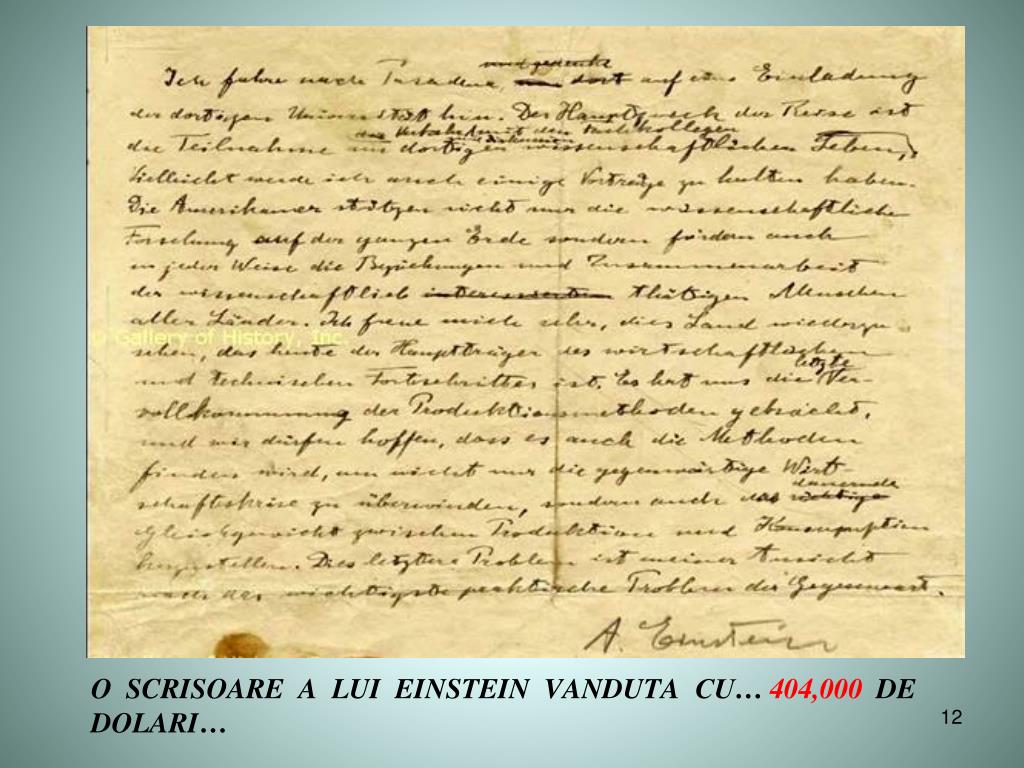 und gedenke
Ich fahre nach Pasadena, dort auf eine Einladung
der dortigen Universität hin. Der Hauptzweck der Reise ist
den Fachkollegen
die Teilnahme am dortigen wissenschaftlichen Leben,
Vielleicht werde ich auch einige Vorträge zu halten haben.
Die Amerikaner stützen nicht nur die wissenschaftliche
Forschung auf der ganzen Erde sondern fördern auch
in jeder Weise die Beziehungen und Zusammenarbeit
der wissenschaftlich interessierten thätigen Menschen
aller Länder. Ich freue mich sehr, dies Land wiederzu
© Gallery of History, Inc.
sehen, das heute der Hauptträger des wirtschaftlichen
letzte
und technischen Fortschrittes ist. Es hat uns die Ver-
vollkommnung der Produktionsmethoden gebracht,
und wir dürfen hoffen, dass es auch die Methoden
finden wird, um nicht nur die gegenwärtige Wirt-
dauernde
schaftskrise zu überwinden, sondern auch das richtige
Gleichgewicht zwischen Produktion und Konsumption
herzustellen. Dies letztere Problem ist meiner Ansicht
nach das wichtigste praktische Problem der Gegenwart.
A. Einstein
O SCRISOARE A LUI EINSTEIN VANDUTA CU… 404,000 DE
DOLARI…
12